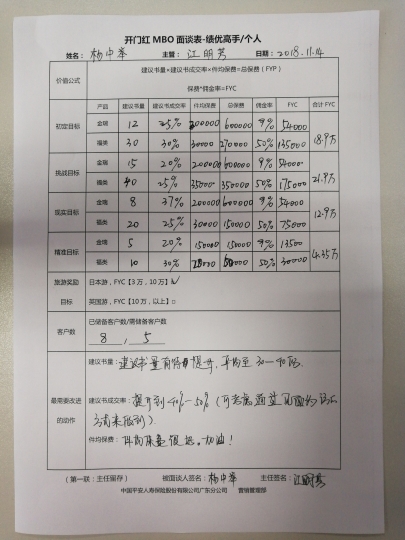 开门红 MBO 面谈表-绩优高手/个人
姓名： 杨中举 主管： 江明芳 日期： 2018.11.14
价值公式 建议书量*建议书成交率*件均保费=总保费（FYP）
保费*佣金率=FYC
产品 建议书量 建议书成交率 件均保费 总保费 佣金率 FYC 合计 FYC
初定目标 金瑞 12 25% 200000 600000 9% 54000 18.9万
福类 30 30% 30000 270000 50% 135000
挑战目标 金瑞 15 20% 200000 600000 9% 54000 21.9万
福类 40 25% 35000 350000 50% 175000
现实目标 金瑞 8 37% 200000 600000 9% 54000 12.9万
福类 20 25% 30000 150000 50% 75000
精准目标 金瑞 5 20% 150000 150000 9% 13500 4.35万
福类 10 30% 50% 30000
旅游奖励目标 日本游，FYC【3 万，10 万】☑
英国游，FYC【10 万，以上】□
客户数 已储备客户数/需储备客户数
8 , 5
最需要改进的动作 建议书量：建议书量有待提升，平均至30-40份.
建议书成交率：提升到40%-50%
件均保费：件均保量很足。加油！
（第一联：主任留存） 被面谈人签名：杨中举 主任签名：江明芳
中国平安人寿保险股份有限公司广东分公司 营销管理部